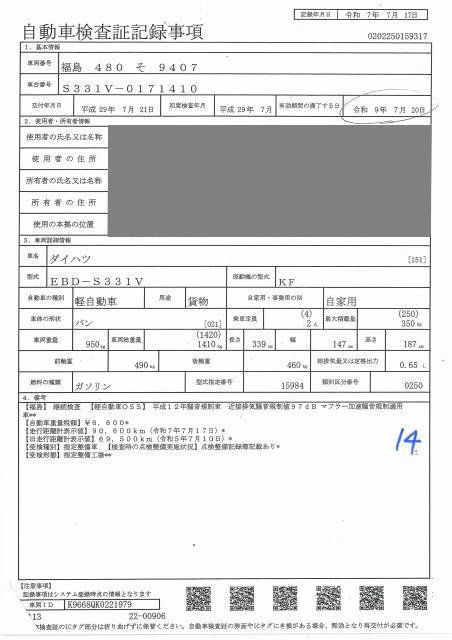 記録年月日 令和 7年 7月 17日
自動車検査証記録事項
0202250159317
1. 基本情報
車両番号 福島 480 そ 9407
車台番号 S331V-0171410
交付年月日 平成 29年 7月 21日 初度検査年月 平成 29年 7月 有効期間の満了する日 令和 9年 7月 20日
2. 使用者・所有者情報
使用者の氏名又は名称
使用者の住所
所有者の氏名又は名称
所有者の住所
使用の本拠の位置
3. 車両詳細情報
車名 ダイハツ [151]
型式 EBD-S331V 原動機の型式 KF
自動車の種別 軽自動車 用途 貨物 自家用・事業用の別 自家用
車体の形状 バン [021] 乗車定員 (4) 2人 最大積載量 (250) 350kg
車両重量 950kg 車両総重量 (1420) 1410kg 長さ 339cm 幅 147cm 高さ 187cm
前軸重 490kg 後軸重 460kg 総排気量又は定格出力 0.65 L
燃料の種類 ガソリン 型式指定番号 15984 類別区分番号 0250
4. 備考
【福島】 継続検査 【軽自動車OSS】 平成12年騒音規制車 近接排気騒音規制値97dB マフラー加速騒音規制適用
車**
【自動車重量税額】¥6,600*
【走行距離計表示値】90,600km(令和7年7月17日)*
【旧走行距離計表示値】69,500km(令和5年7月10日)*
【受検種別】指定整備車 【検査時の点検整備実施状況】点検整備記録簿記載あり*
【受検形態】指定整備工場**
14
【注意事項】
記載事項はシステム登録時点の情報となります
車両ID K9668QK0221979
13 22-00906
検査証のICタグ部分は折り曲げずに保管ください。自動車検査証の券面やICタグにき損がある場合、無効となり再交付が必要です。